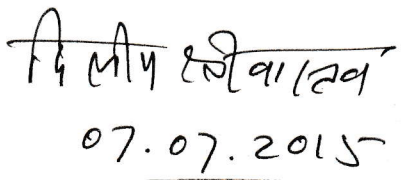 दिलीप श्रीवास्तव
07.07.2015